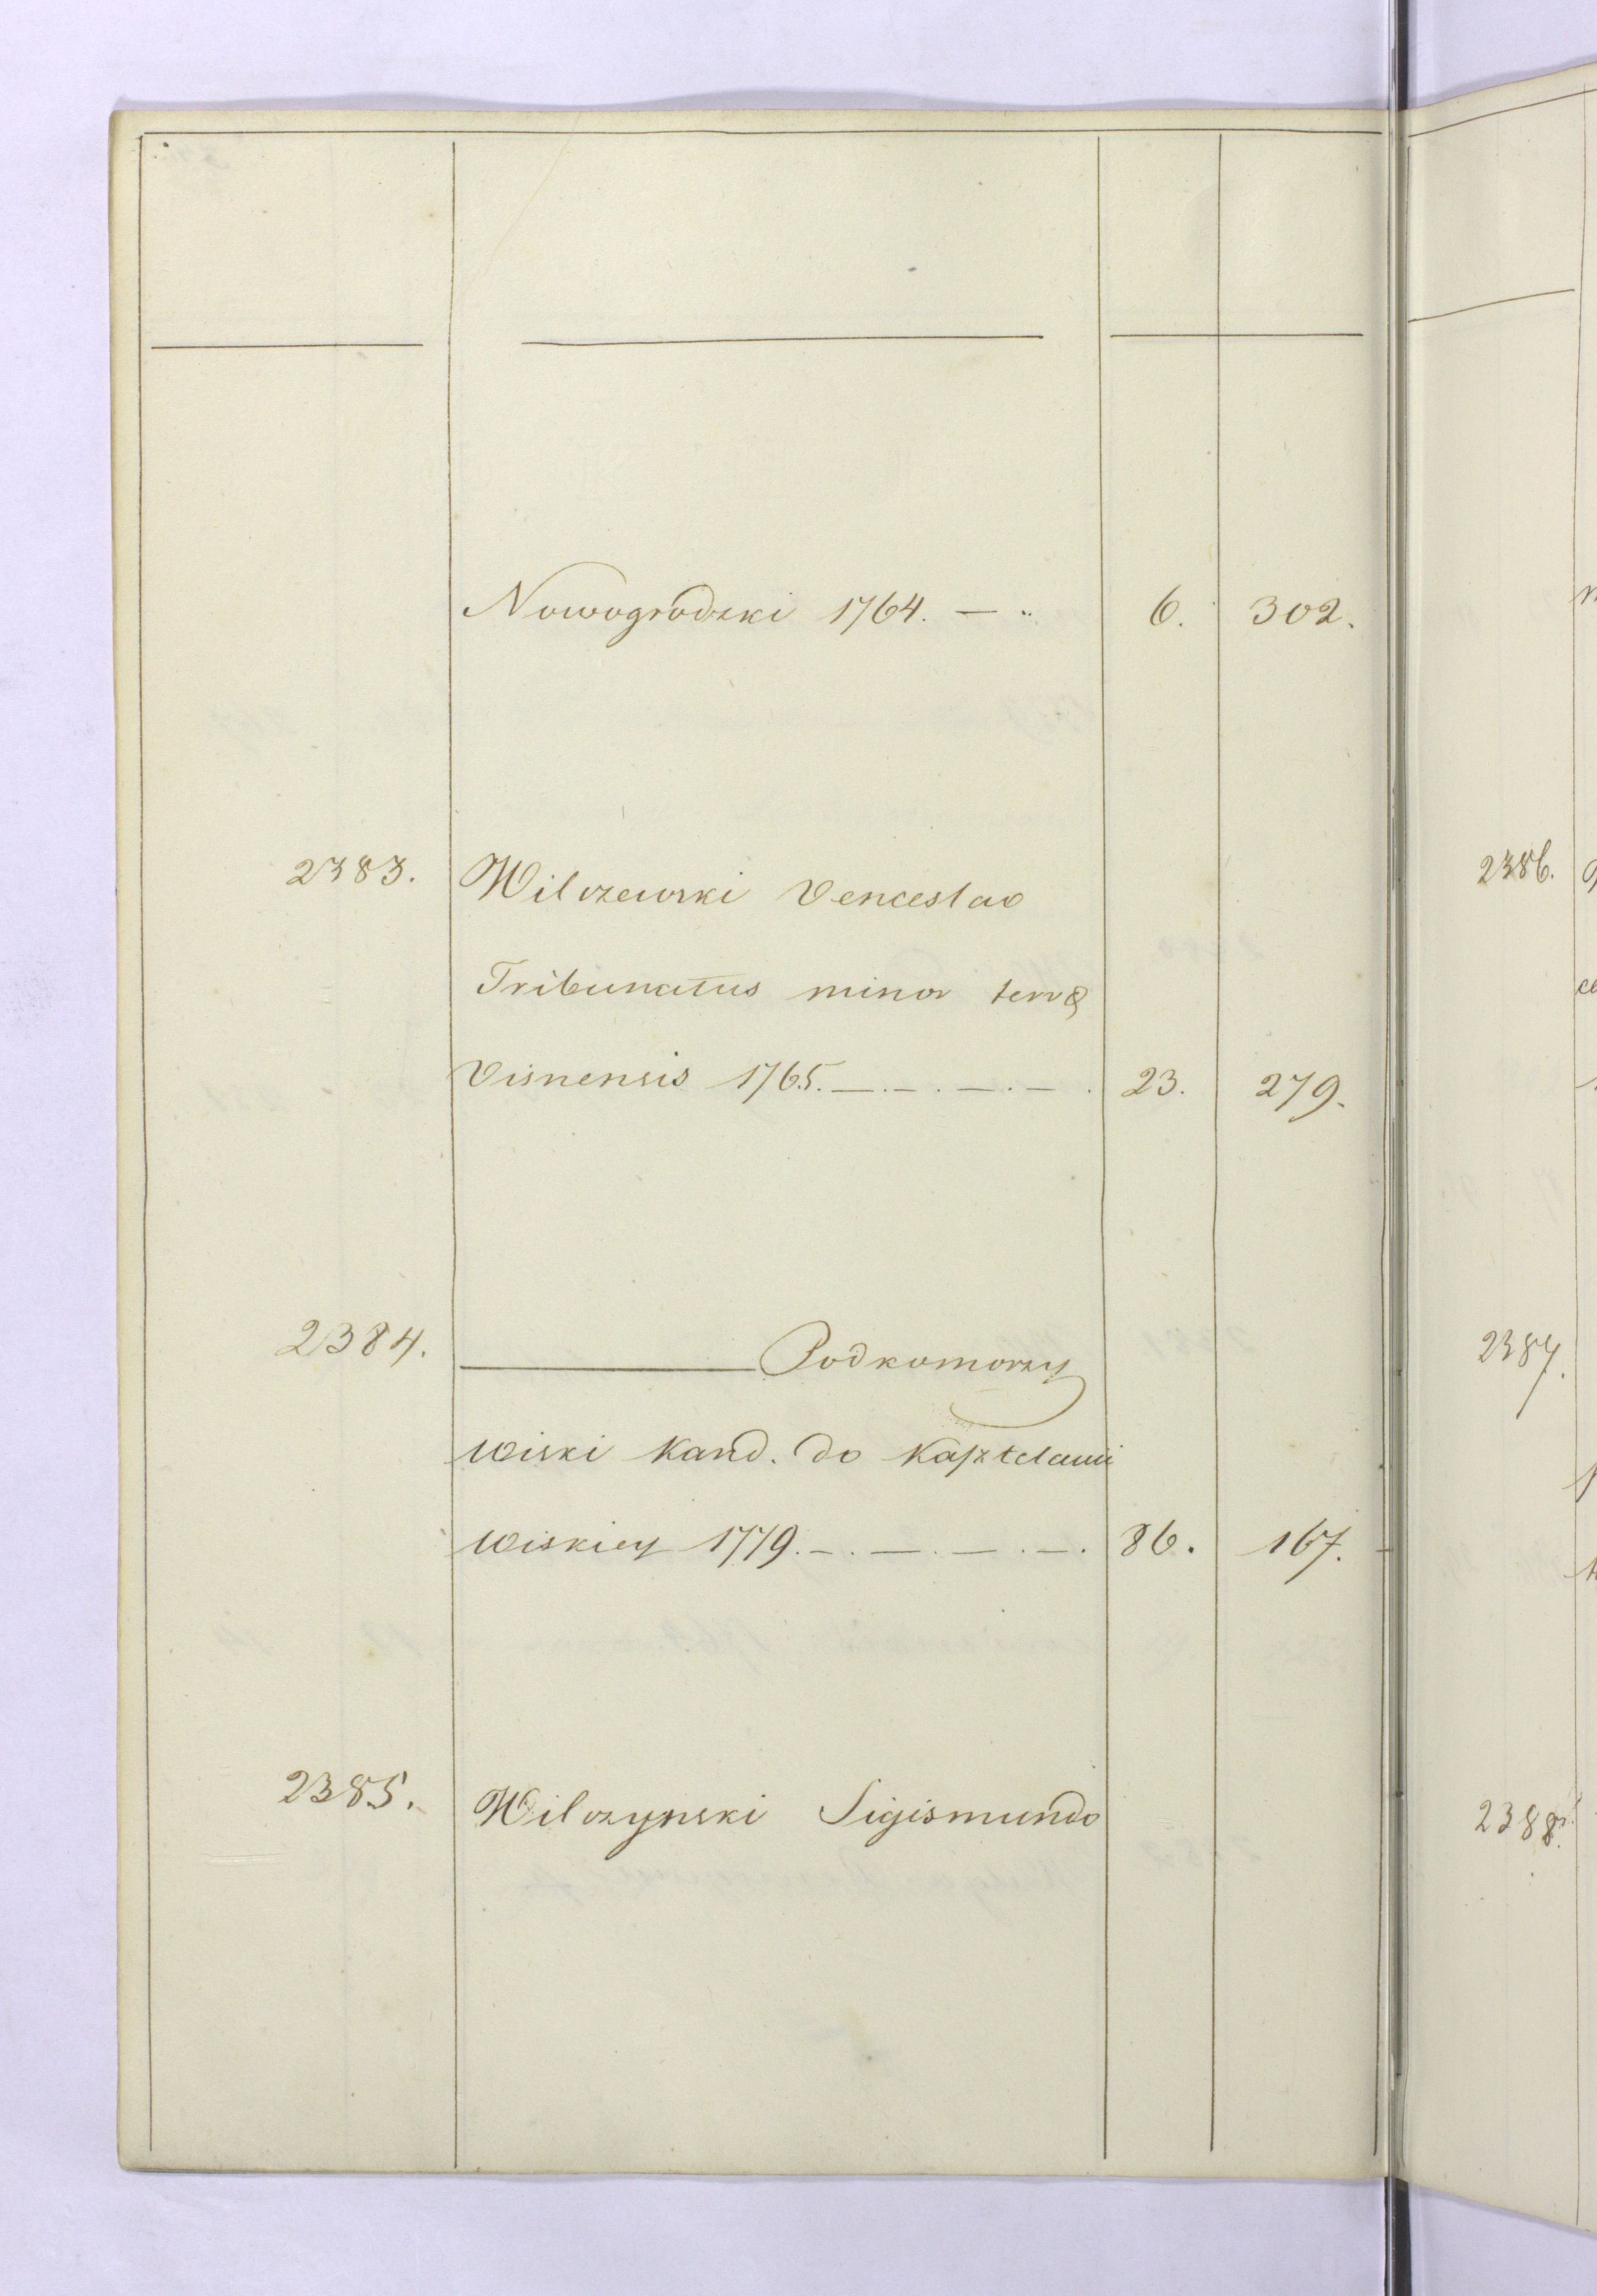 Nowogrodzki 1764. — .. 6. 302.
2383. Wilczewski Venceslao
Tribunatus minor terræ
Visnensis 1765. —.—.—.—. 23. 279.
2384. ——— Podkomorzy
Wiski Kand. do Kasztelanii
Wiskiey 1779. —.—.—.—. 86. 167.
2385. Wilczynski Sigismundo
2386.
2387.
2388.